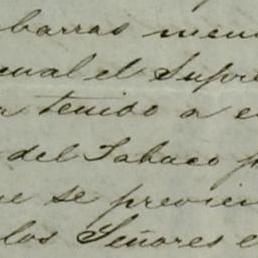 barras men
cual el Supre
tenido a e
del Tabaco p
ue se previen
los Señores e